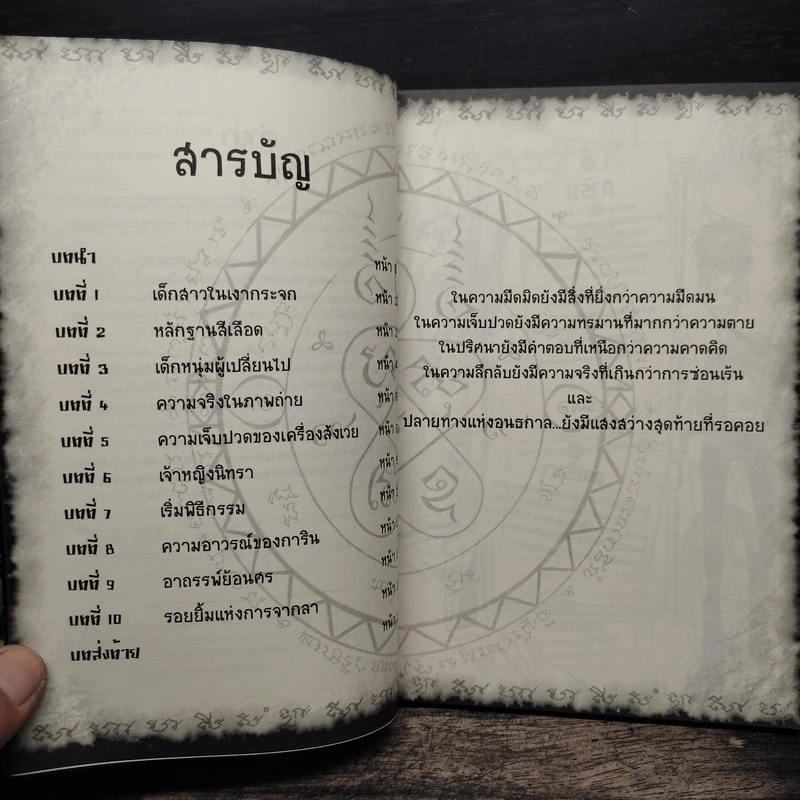 สารบัญ
บทนำ หน้า
บทที่ 1 เด็กสาวในเงากระจก หน้า
บทที่ 2 หลักฐานสีเลือด หน้า
บทที่ 3 เด็กหนุ่มผู้เปลี่ยนไป หน้า
บทที่ 4 ความจริงในภาพถ่าย หน้า
บทที่ 5 ความเจ็บปวดของเครื่องสังเวย หน้า
บทที่ 6 เจ้าหญิงนิทรา หน้า
บทที่ 7 เริ่มพิธีกรรม หน้า
บทที่ 8 ความอาวรณ์ของการิน หน้า
บทที่ 9 อาถรรพ์ย้อนศร หน้า
บทที่ 10 รอยยิ้มแห่งการจากลา หน้า
บทส่งท้าย
ในความมืดมิดยังมีสิ่งที่ยิ่งกว่าความมืดมน
ในความเจ็บปวดยังมีความทรมานที่มากกว่าความตาย
ในปริศนายังมีคำตอบที่เหนือกว่าความคาดคิด
ในความลึกลับยังมีความจริงที่เกินกว่าการซ่อนเร้น
และ
ปลายทางแห่งอนธกาล...ยังมีแสงสว่างสุดท้ายที่รอคอย